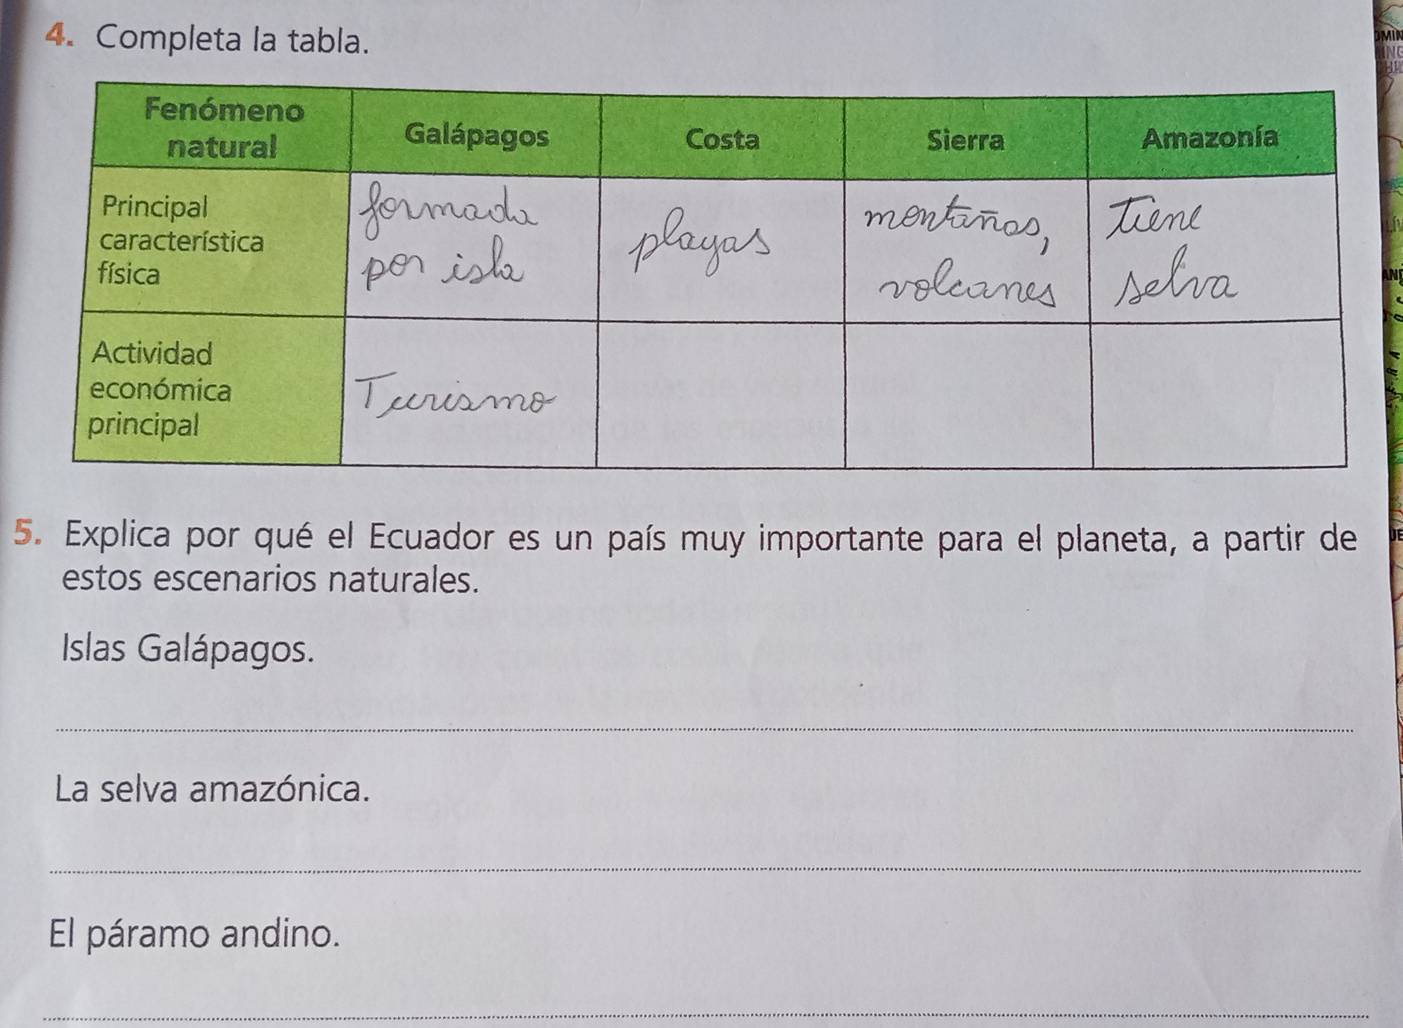 4. Completa la tabla.
Fenómeno
natural
Galápagos
Costa
Sierra
Amazonía
Principal
característica
física
formada
por isla
playas
montañas,
volcanes
Tiene
selva
Actividad
económica
principal
Turismo
5. Explica por qué el Ecuador es un país muy importante para el planeta, a partir de
estos escenarios naturales.
Islas Galápagos.
La selva amazónica.
El páramo andino.